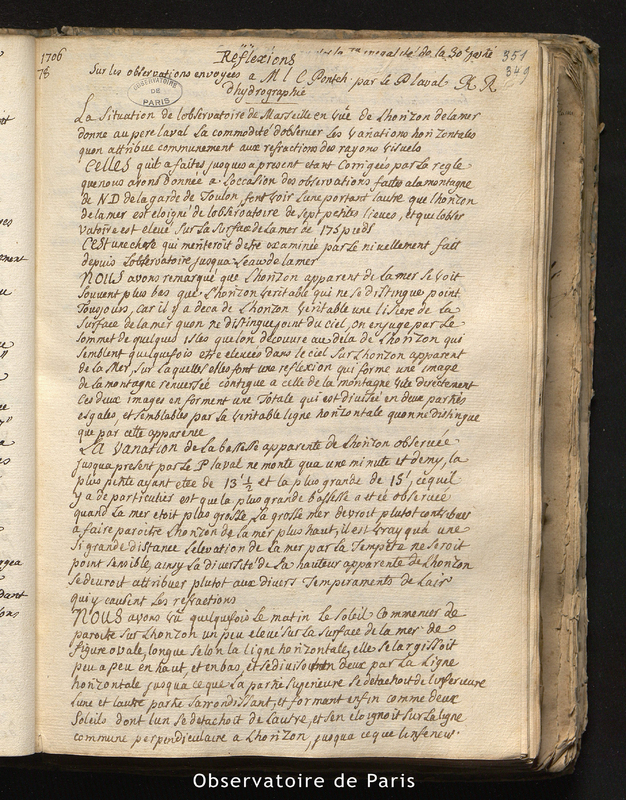 1706
78
Reflexions
de la 30e partie
351
349
Sur les observations envoyées a M l C Pontch par le P laval
Dhydrographie
OBSERVATOIRE DE PARIS
La Situation de lobservatoire de Marseille en vüe de Lhorizon delamer
donne au pere laval La commodité dobserver Les variations horizontales
quon attribue communement aux refractions des rayons visuels
Celles quil a faites jusques apresent etant Corrigées par La regle
que nous avons donnée a Loccasion des observations faites alamontagne
de N D delagarde de Toulon font voir Lune portant lautre que lhorizon
delamer est eloigné de lobservatoire de sept petites lieues, et que lobser
vatoire est elevé Sur La Surface de Lamer de 175 pieds
C'est une chose qui meriteroit detre examinée par Le nivellement fait
depuis Lobservatoire jusqua Leau de lamer
Nous avons remarqué que Lhorizon apparent de La mer se voit
Souvent plus bas que Lhorizon veritable qui ne se distingue point
Toujours, car il y a deca de Lhorizon veritable une lisiere de la
Surface delamer quon ne distingue point du ciel, on en juge par Le
Sommet de quelques isles que lon decouvre au dela de Lhorizon qui
semblent quelquefois etre elevées dans le ciel Sur Lhorizon apparent
de la Mer, Sur La quelle elles font une reflexion qui forme une image
de la montagne renversée contigue a celle de la montagne vüe directement
Ces deux images en forment une Totale qui est divisée en deux parties
esgales, et semblables par La veritable ligne horizontale quon ne distingue
que par cette apparence
La variation de La bassesse apparente de Lhorizon observée
jusqua present par Le P laval ne monte qua une minute et demy, la
plus petite ayant etée de 13' ½ et la plus grande de 15', ce quil
y a de particulier est que la plus grande bassesse a eté observée
quand La mer etoit plus grosse, La grosse mer devroit plutot contribuer
a faire paroitre Lhorizon de La mer plus haut, il est vray qua une
Si grande distance Lelevation de La mer par la Tempete ne seroit
point sensible, ainsy La diversité de La hauteur apparente de Lhorizon
se devroit attribuer plutot aux divers Temperaments de Lair
qui y causent Les refractions
Nous avons vü quelquefois Le matin Le Soleil Commencer de
paroitre Sur Lhorizon un peu elevé Sur La surface de La mer de
figure ovale, longue selon la ligne horizontale, elle se largissoit
peu a peu en haut, et en bas, et se divisoit en deux par La Ligne
horizontale jusqua ce que La partie superieure se detachoit de linferieure
Lune et lautre partie Sarrondissant, et formant enfin comme deux
Soleils dont lun se detachoit de Lautre, et sen eloignoit Sur La ligne
commune perpendiculaire a Lhorizon, jusqua ce que Linferieur
Observatoire de Paris